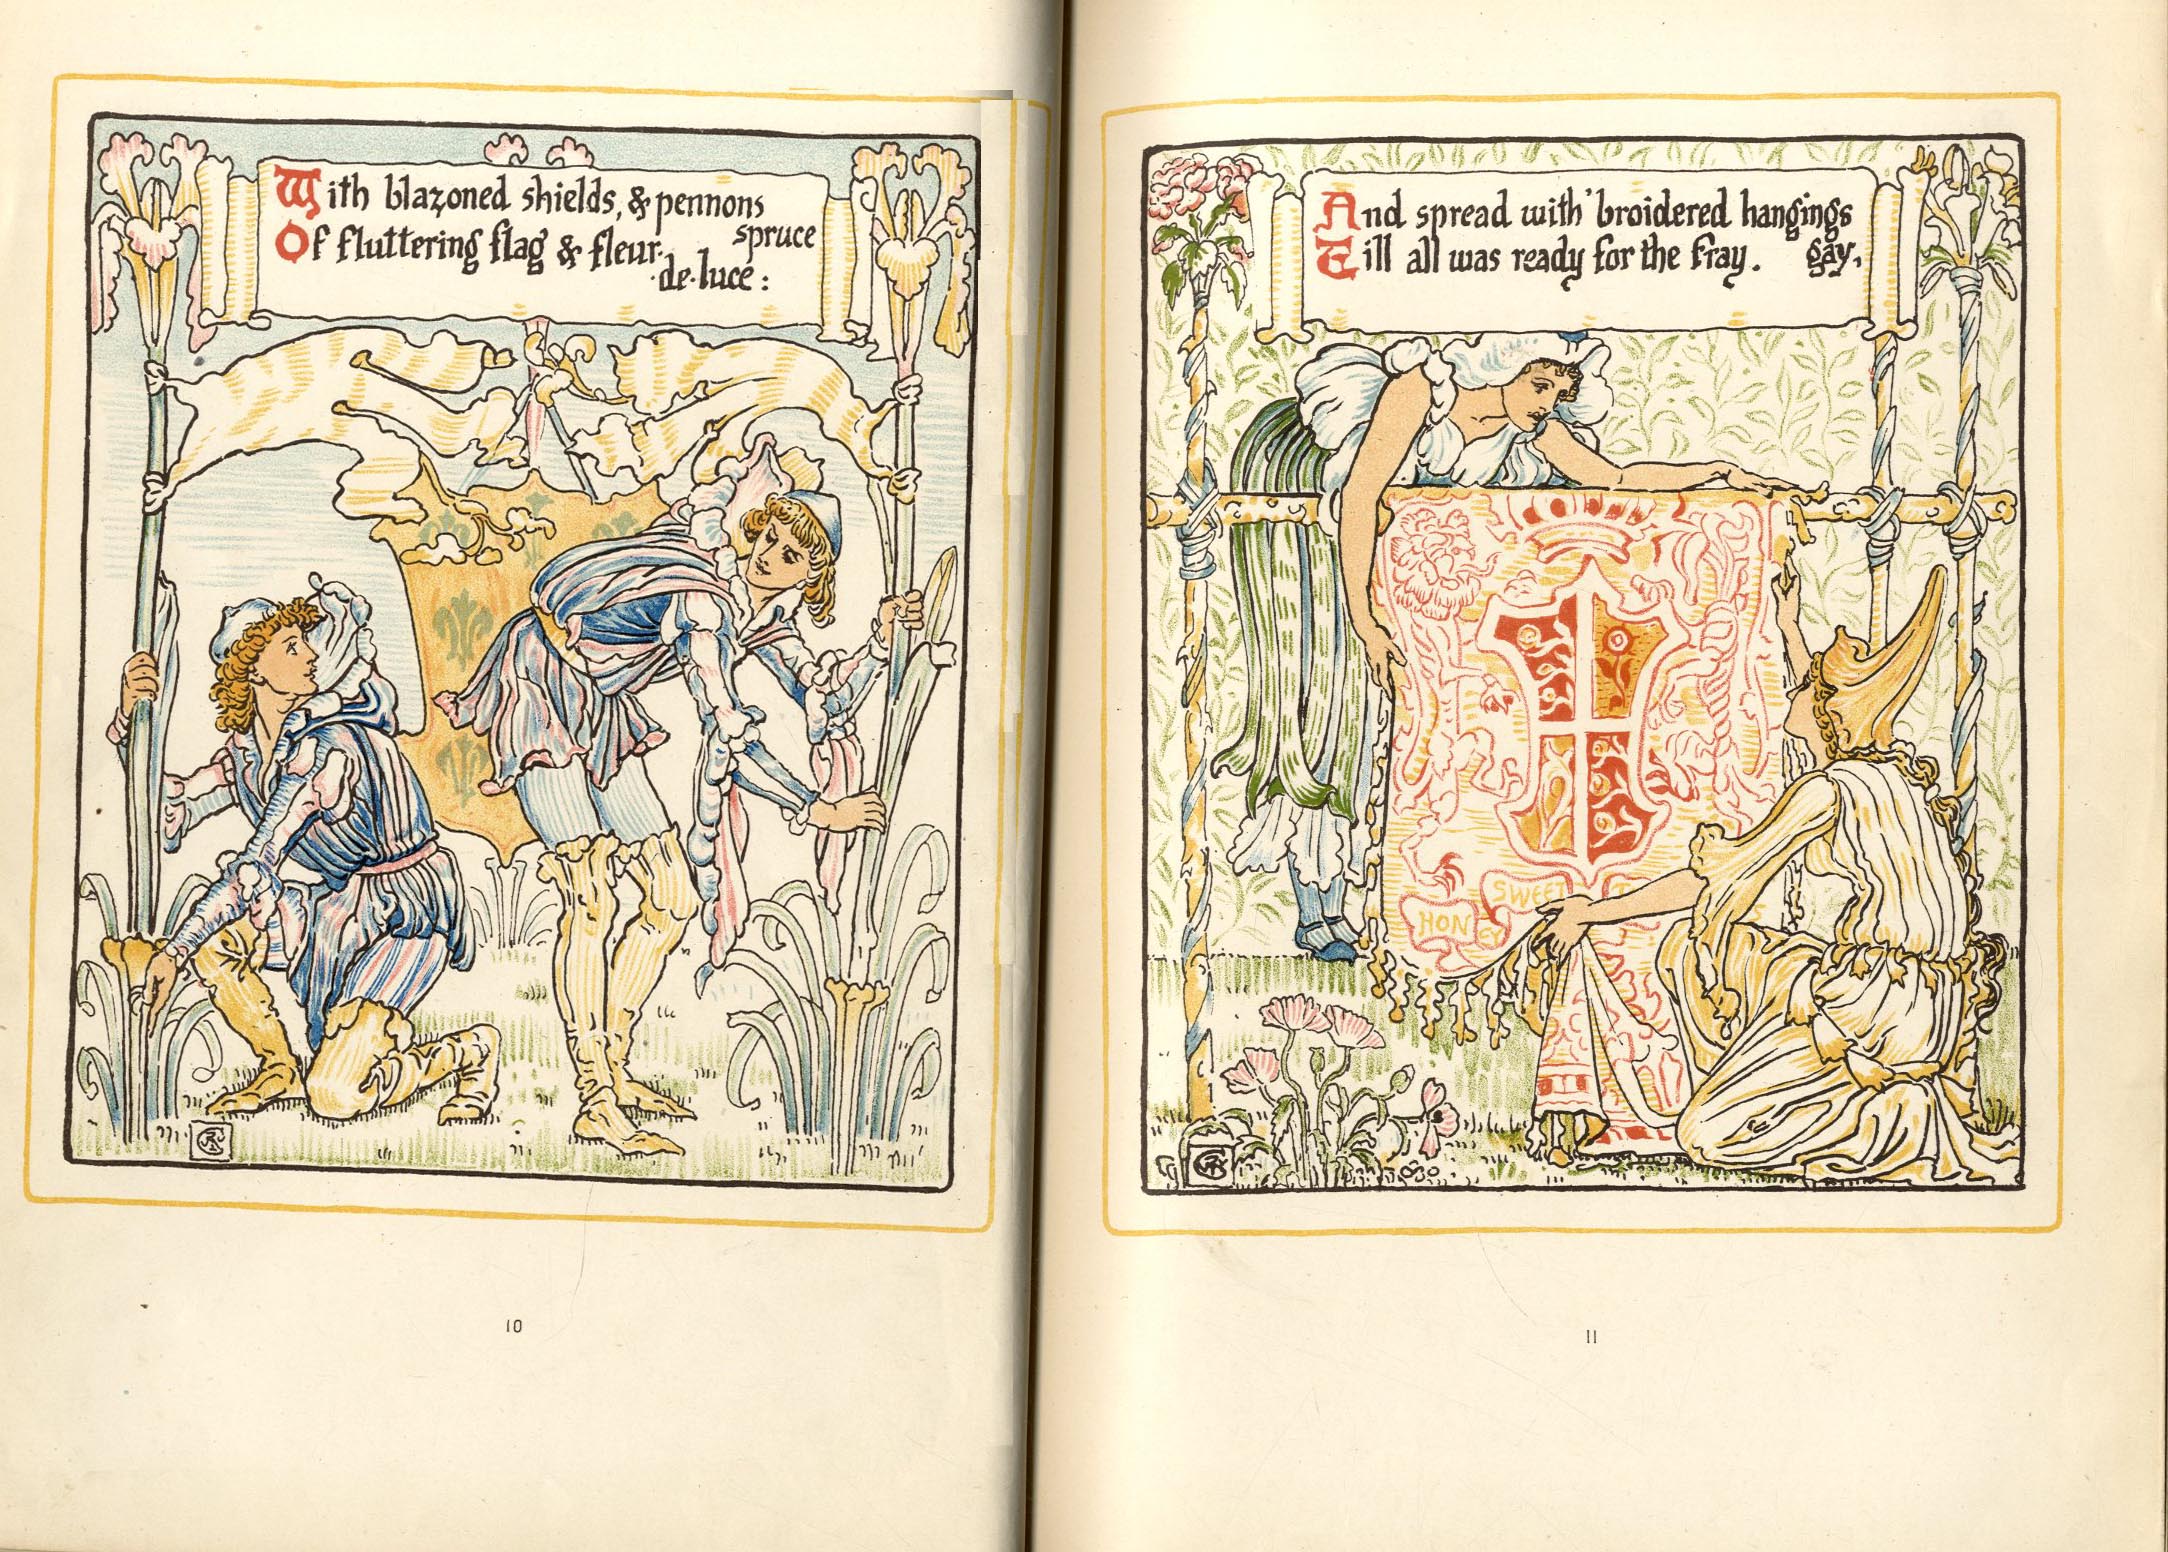 With blazoned shields, & pennons
spruce
Of fluttering flag & fleur·
·de·luce:
10
And spread with 'broidered hangings
gay,
Till all was ready for the fray.
HONEY
SWEET
11